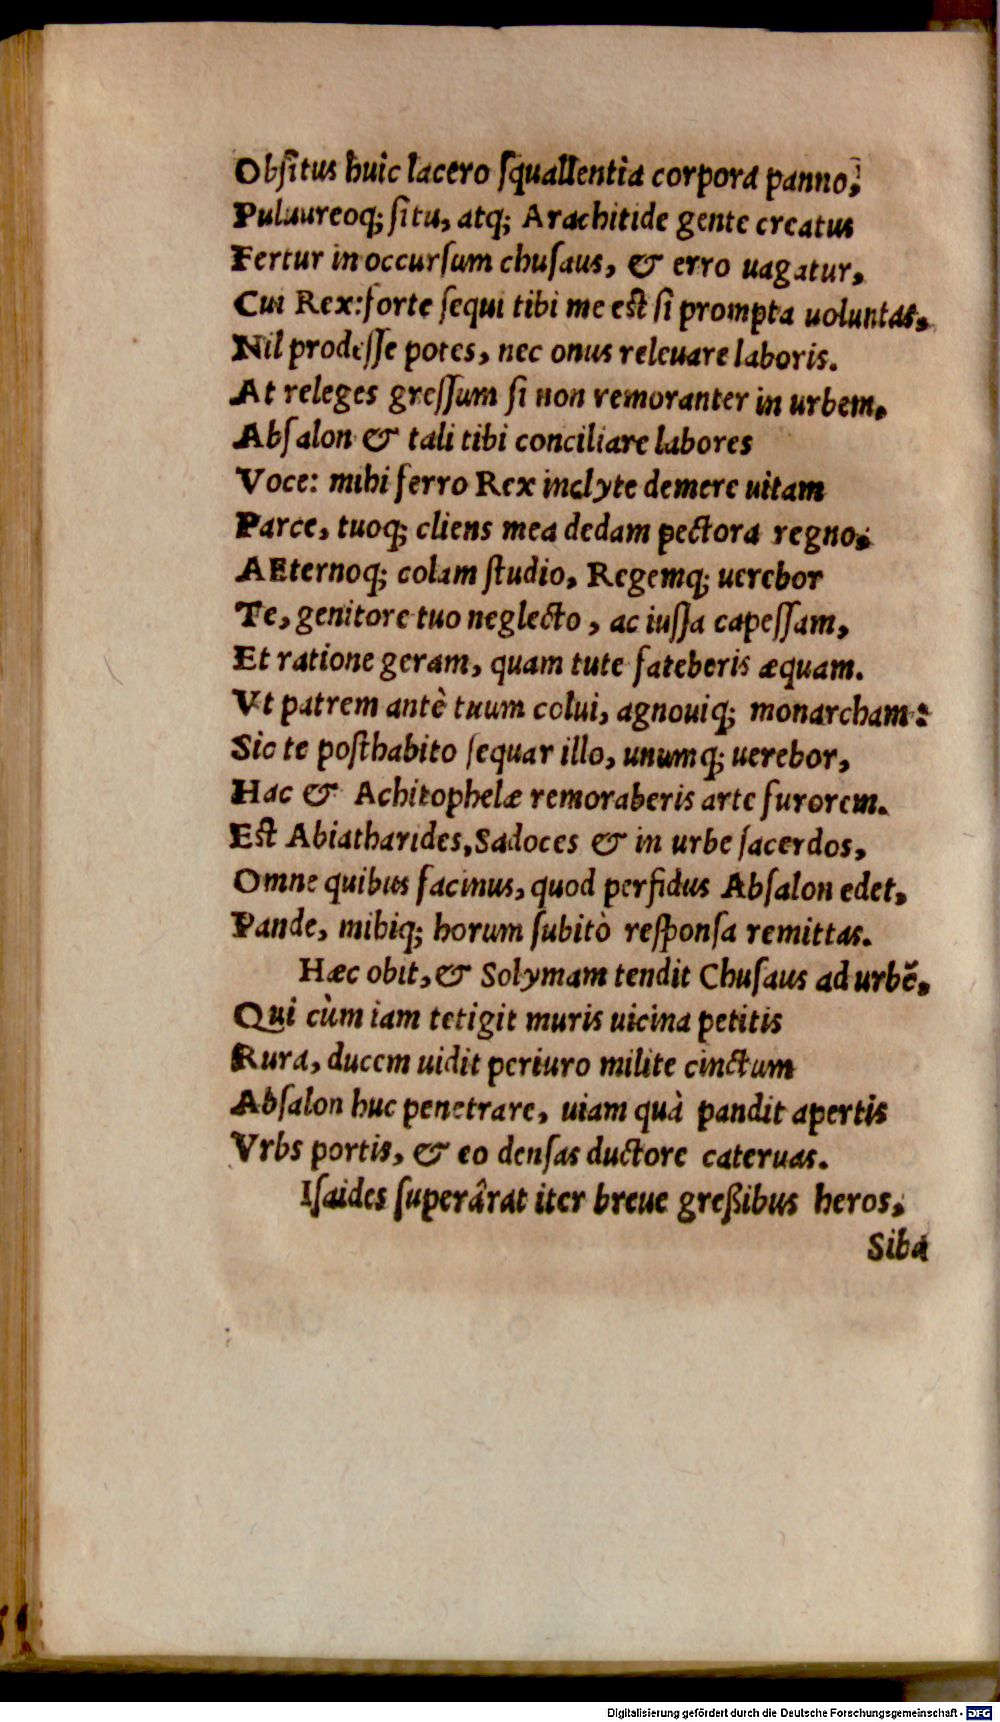 Obſitus huic lacero ſquallentia corpora panno,
Puluureoq; ſitu, atq; Arachitide gente creatus
Fertur in occurſum chuſaus, & erro uagatur,
Cui Rex: forte ſequi tibi me eſt ſi prompta uoluntas,
Nil prodeſſe potes, nec onus releuare laboris.
At releges greſſum ſi non remoranter in urbem,
Abſalon & tali tibi conciliare labores
Voce: mihi ferro Rex inclyte demere uitam
Parce, tuoq; cliens mea dedam pectora regno,
AEternoq; colam ſtudio, Regemq; uerebor
Te, genitore tuo neglecto, ac iuſſa capeſſam,
Et ratione geram, quam tute fateberis æquam.
Vt patrem antè tuum colui, agnouiq; monarcham:
Sic te poſthabito ſequar illo, unumq; uerebor,
Hac & Achitophelæ remoraberis arte furorem.
Eſt Abiatharides, Sadoces & in urbe ſacerdos,
Omne quibus facinus, quod perfidus Abſalon edet,
Pande, mihiq; horum ſubitò reſponſa remittas.
Hæc obit, & Solymam tendit Chuſaus ad urbē,
Qui cùm iam tetigit muris uicina petitis
Rura, ducem uidit periuro milite cinctum
Abſalon huc penetrare, uiam quà pandit apertis
Vrbs portis, & eo denſas ductore cateruas.
Iſaides ſuperârat iter breue greßibus heros,
Siba
Digitalisierung gefördert durch die Deutsche Forschungsgemeinschaft - DFG